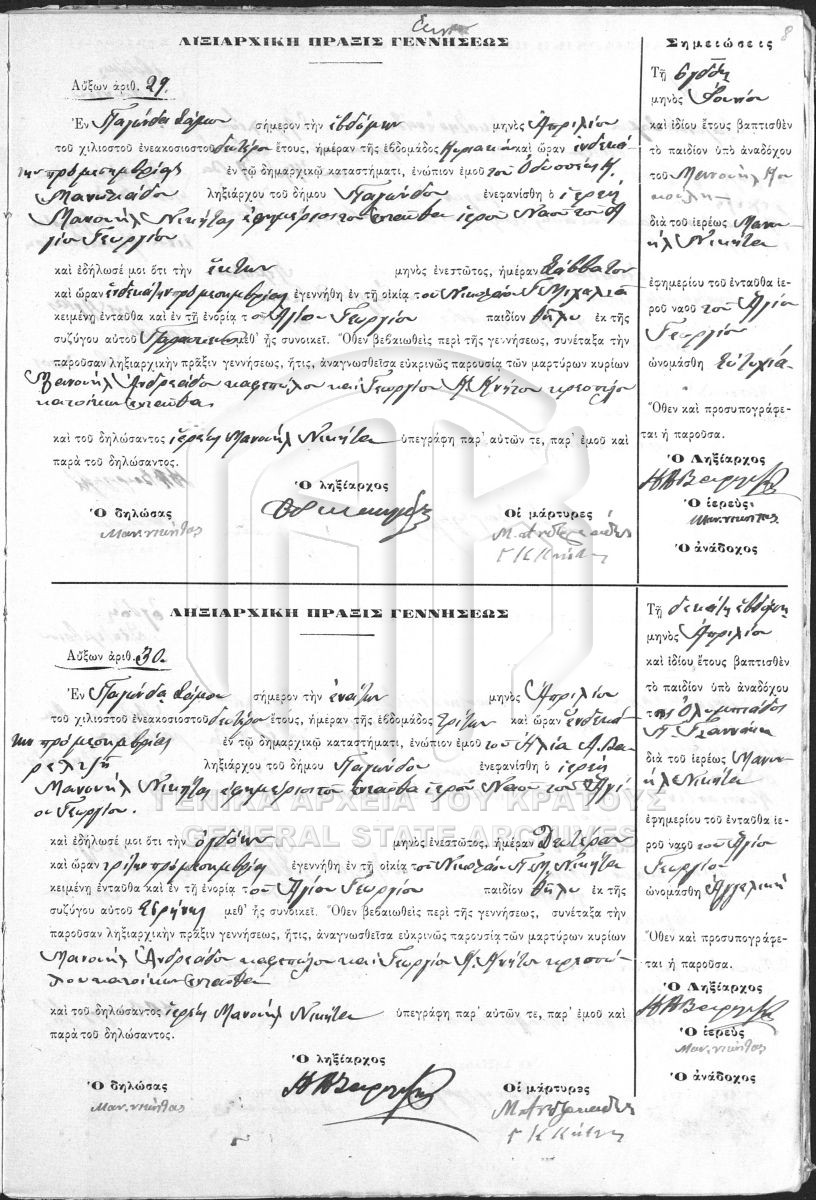 8
ΛΙΞΙΑΡΧΙΚΗ ΠΡΑΞΙΣ ΓΕΝΝΗΣΕΩΣ
Αὔξων ἀριθ. 29.
Ἐν Παγώνδα Σάμου σήμερον τὴν ἑβδόμην μηνὸς Ἀπριλίου
τοῦ χιλιοστοῦ ἐνεακοσιοστοῦ δευτέρου ἔτους, ἡμέραν τῆς ἑβδομάδος Κυριακὴ καὶ ὥραν ἑνδεκά
την πρὸ μεσημβρίας ἐν τῷ δημαρχικῷ καταστήματι, ἐνώπιον ἐμοῦ τοῦ Ὀδυσσέως Κ.
ληξιάρχου τοῦ δήμου Παγώνδου ἐνεφανίσθη ὁ ἱερεὺς
Μανουὴλ Νικήτας ἐφημέριος τοῦ ἐνταῦθα ἱεροῦ Ναοῦ τοῦ Ἁ
γίου Γεωργίου
καὶ ἐδήλωσέ μοι ὅτι τὴν ἕκτην μηνὸς ἐνεστῶτος, ἡμέραν Σάββατον
καὶ ὥραν ἑνδεκάτην πρὸ μεσημβρίας ἐγεννήθη ἐν τῇ οἰκίᾳ τοῦ Νικολάου Γ. Μιχαλιά
κειμένῃ ἐνταῦθα καὶ ἐν τῇ ἐνορίᾳ τοῦ Ἁγίου Γεωργίου παιδίον θῆλυ ἐκ τῆς
συζύγου αὐτοῦ μεθ' ἧς συνοικεῖ. Ὅθεν βεβαιωθεὶς περὶ τῆς γεννήσεως, συνέταξα τὴν
παροῦσαν ληξιαρχικὴν πρᾶξιν γεννήσεως, ἥτις, ἀναγνωσθεῖσα εὐκρινῶς παρουσίᾳ τῶν μαρτύρων κυρίων
Μανουὴλ Ἀνδρεάδου καφεπώλου καὶ Γεωργίου Κ. Κνήτου κρεοπώλου
κατοίκων ἐνταῦθα
καὶ τοῦ δηλώσαντος ἱερέως Μανουὴλ Νικήτα ὑπεγράφη παρ' αὐτῶν τε, παρ' ἐμοῦ καὶ
παρὰ τοῦ δηλώσαντος.
Ὁ ληξίαρχος
Ὁ δηλώσας
Μαν. νικήτας
Οἱ μάρτυρες
Μ. Ανδρεαδης
Γ Κ Κνήτης
Σημειώσεις
Τῇ ὀγδόῃ
μηνὸς Ἰουνίου
καὶ ἰδίου ἔτους βαπτισθὲν
τὸ παιδίον ὑπὸ ἀναδόχου
τοῦ Μανουὴλ
διὰ τοῦ ἱερέως Μανου
ὴλ Νικήτα
ἐφημερίου τοῦ ἐνταῦθα ἱε-
ροῦ ναοῦ τοῦ Ἁγίου
Γεωργίου
ὠνομάσθη Εὐτυχία-
Ὅθεν καὶ προσυπογράφε-
ται ἡ παροῦσα.
Ὁ Ληξίαρχος
Ὁ ἱερεὺς
Μαν. νικήτας
Ὁ ἀνάδοχος
ΛΗΞΙΑΡΧΙΚΗ ΠΡΑΞΙΣ ΓΕΝΝΗΣΕΩΣ
Αὔξων ἀριθ. 30.
Ἐν Παγώνδα Σάμου σήμερον τὴν ἐνάτην μηνὸς Ἀπριλίου
τοῦ χιλιοστοῦ ἐνεακοσιοστοῦ δευτέρου ἔτους, ἡμέραν τῆς ἑβδομάδος Τρίτην καὶ ὥραν ἑνδεκά
την πρὸ μεσημβρίας ἐν τῷ δημαρχικῷ καταστήματι, ἐνώπιον ἐμοῦ τοῦ Ἠλία
ληξιάρχου τοῦ δήμου Παγώνδου ἐνεφανίσθη ὁ ἱερεὺς
Μανουὴλ Νικήτας ἐφημέριος τοῦ ἐνταῦθα ἱεροῦ Ναοῦ τοῦ Ἁγί
ου Γεωργίου.
ΓΕΝΙΚΑ ΑΡΧΕΙΑ ΤΟΥ ΚΡΑΤΟΥΣ
GENERAL STATE ARCHIVES
καὶ ἐδήλωσέ μοι ὅτι τὴν ὀγδόην μηνὸς ἐνεστῶτος, ἡμέραν Δευτέραν
καὶ ὥραν τρίτην πρὸ μεσημβρίας ἐγεννήθη ἐν τῇ οἰκίᾳ τοῦ Νικολάου Π. Μ. Νικήτα
κειμένῃ ἐνταῦθα καὶ ἐν τῇ ἐνορίᾳ τοῦ Ἁγίου Γεωργίου παιδίον θῆλυ ἐκ τῆς
συζύγου αὐτοῦ Εἰρήνης μεθ' ἧς συνοικεῖ. Ὅθεν βεβαιωθεὶς περὶ τῆς γεννήσεως, συνέταξα τὴν
παροῦσαν ληξιαρχικὴν πρᾶξιν γεννήσεως, ἥτις, ἀναγνωσθεῖσα εὐκρινῶς παρουσίᾳ τῶν μαρτύρων κυρίων
Μανουὴλ Ἀνδρεάδου καφεπώλου καὶ Γεωργίου Κ. Κνήτου κρεοπώ
λου κατοίκων ἐνταῦθα
καὶ τοῦ δηλώσαντος ἱερέως Μανουὴλ Νικήτα ὑπεγράφη παρ' αὐτῶν τε, παρ' ἐμοῦ καὶ
παρὰ τοῦ δηλώσαντος.
Ὁ ληξίαρχος
Ὁ δηλώσας
Μαν. νικήτας
Οἱ μάρτυρες
Μ. Ανδρεαδης
Γ Κ Κνήτης
Τῇ δεκάτῃ ἑβδόμῃ
μηνὸς Ἀπριλίου
καὶ ἰδίου ἔτους βαπτισθὲν
τὸ παιδίον ὑπὸ ἀναδόχου
τῆς Ὀλυμπιάδος
διὰ τοῦ ἱερέως Μανου
ὴλ Νικήτα
ἐφημερίου τοῦ ἐνταῦθα ἱε-
ροῦ ναοῦ τοῦ Ἁγίου
Γεωργίου
ὠνομάσθη Ἀγγελικὴ
Ὅθεν καὶ προσυπογράφε-
ται ἡ παροῦσα.
Ὁ Ληξίαρχος
Ὁ ἱερεὺς
Μαν. νικήτας
Ὁ ἀνάδοχος